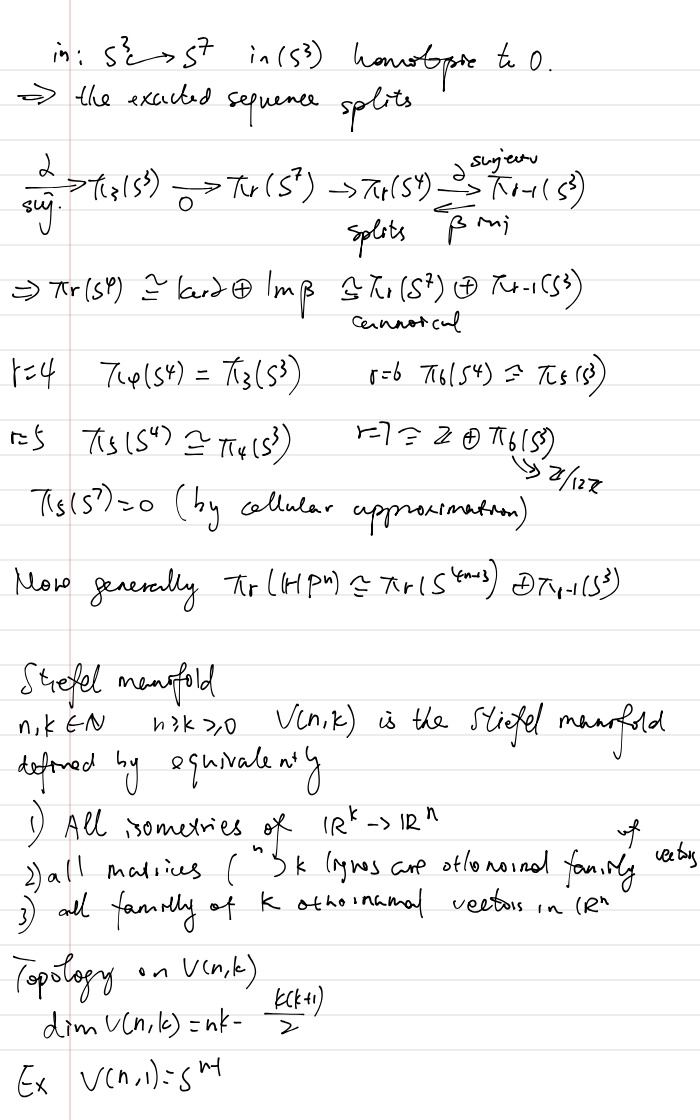 in: S³ ↪ S⁷ in(S³) homotopic to 0.
⇒ the exacted sequence splits
∂ surj. → π₃(S³) →0 πr(S⁷) → πr(S⁴) ∂ surjection → πr-1(S³)
splits ← β inj
⇒ πr(S⁴) ≅ ker∂ ⊕ Im β ≅ πr(S⁷) ⊕ πr-1(S³)
cannonical
r=4 π₄(S⁴) = π₃(S³) r=6 π₆(S⁴) ≅ π₅(S³)
r=5 π₅(S⁴) ≅ π₄(S³) r=7 ≅ Z ⊕ π₆(S³)
↘ Z/12Z
π₅(S⁷)=0 (by cellular approximation)
More generally πr(HPⁿ) ≅ πr(S⁴ⁿ⁺³) ⊕ πr-1(S³)
Stiefel manifold
n,k ∈ N n≥k≥0 V(n,k) is the Stiefel manifold
defined by equivalently
1) All isometries of IRᵏ → IRⁿ
2) all matrices ( ⁿ ) k lignes are othonoinal family of vectors
3) all familly of k othoinamal vectors in IRⁿ
Topology on V(n,k)
dim V(n,k) = nk - k(k+1)/2
Ex V(n,1) = Sⁿ⁻¹